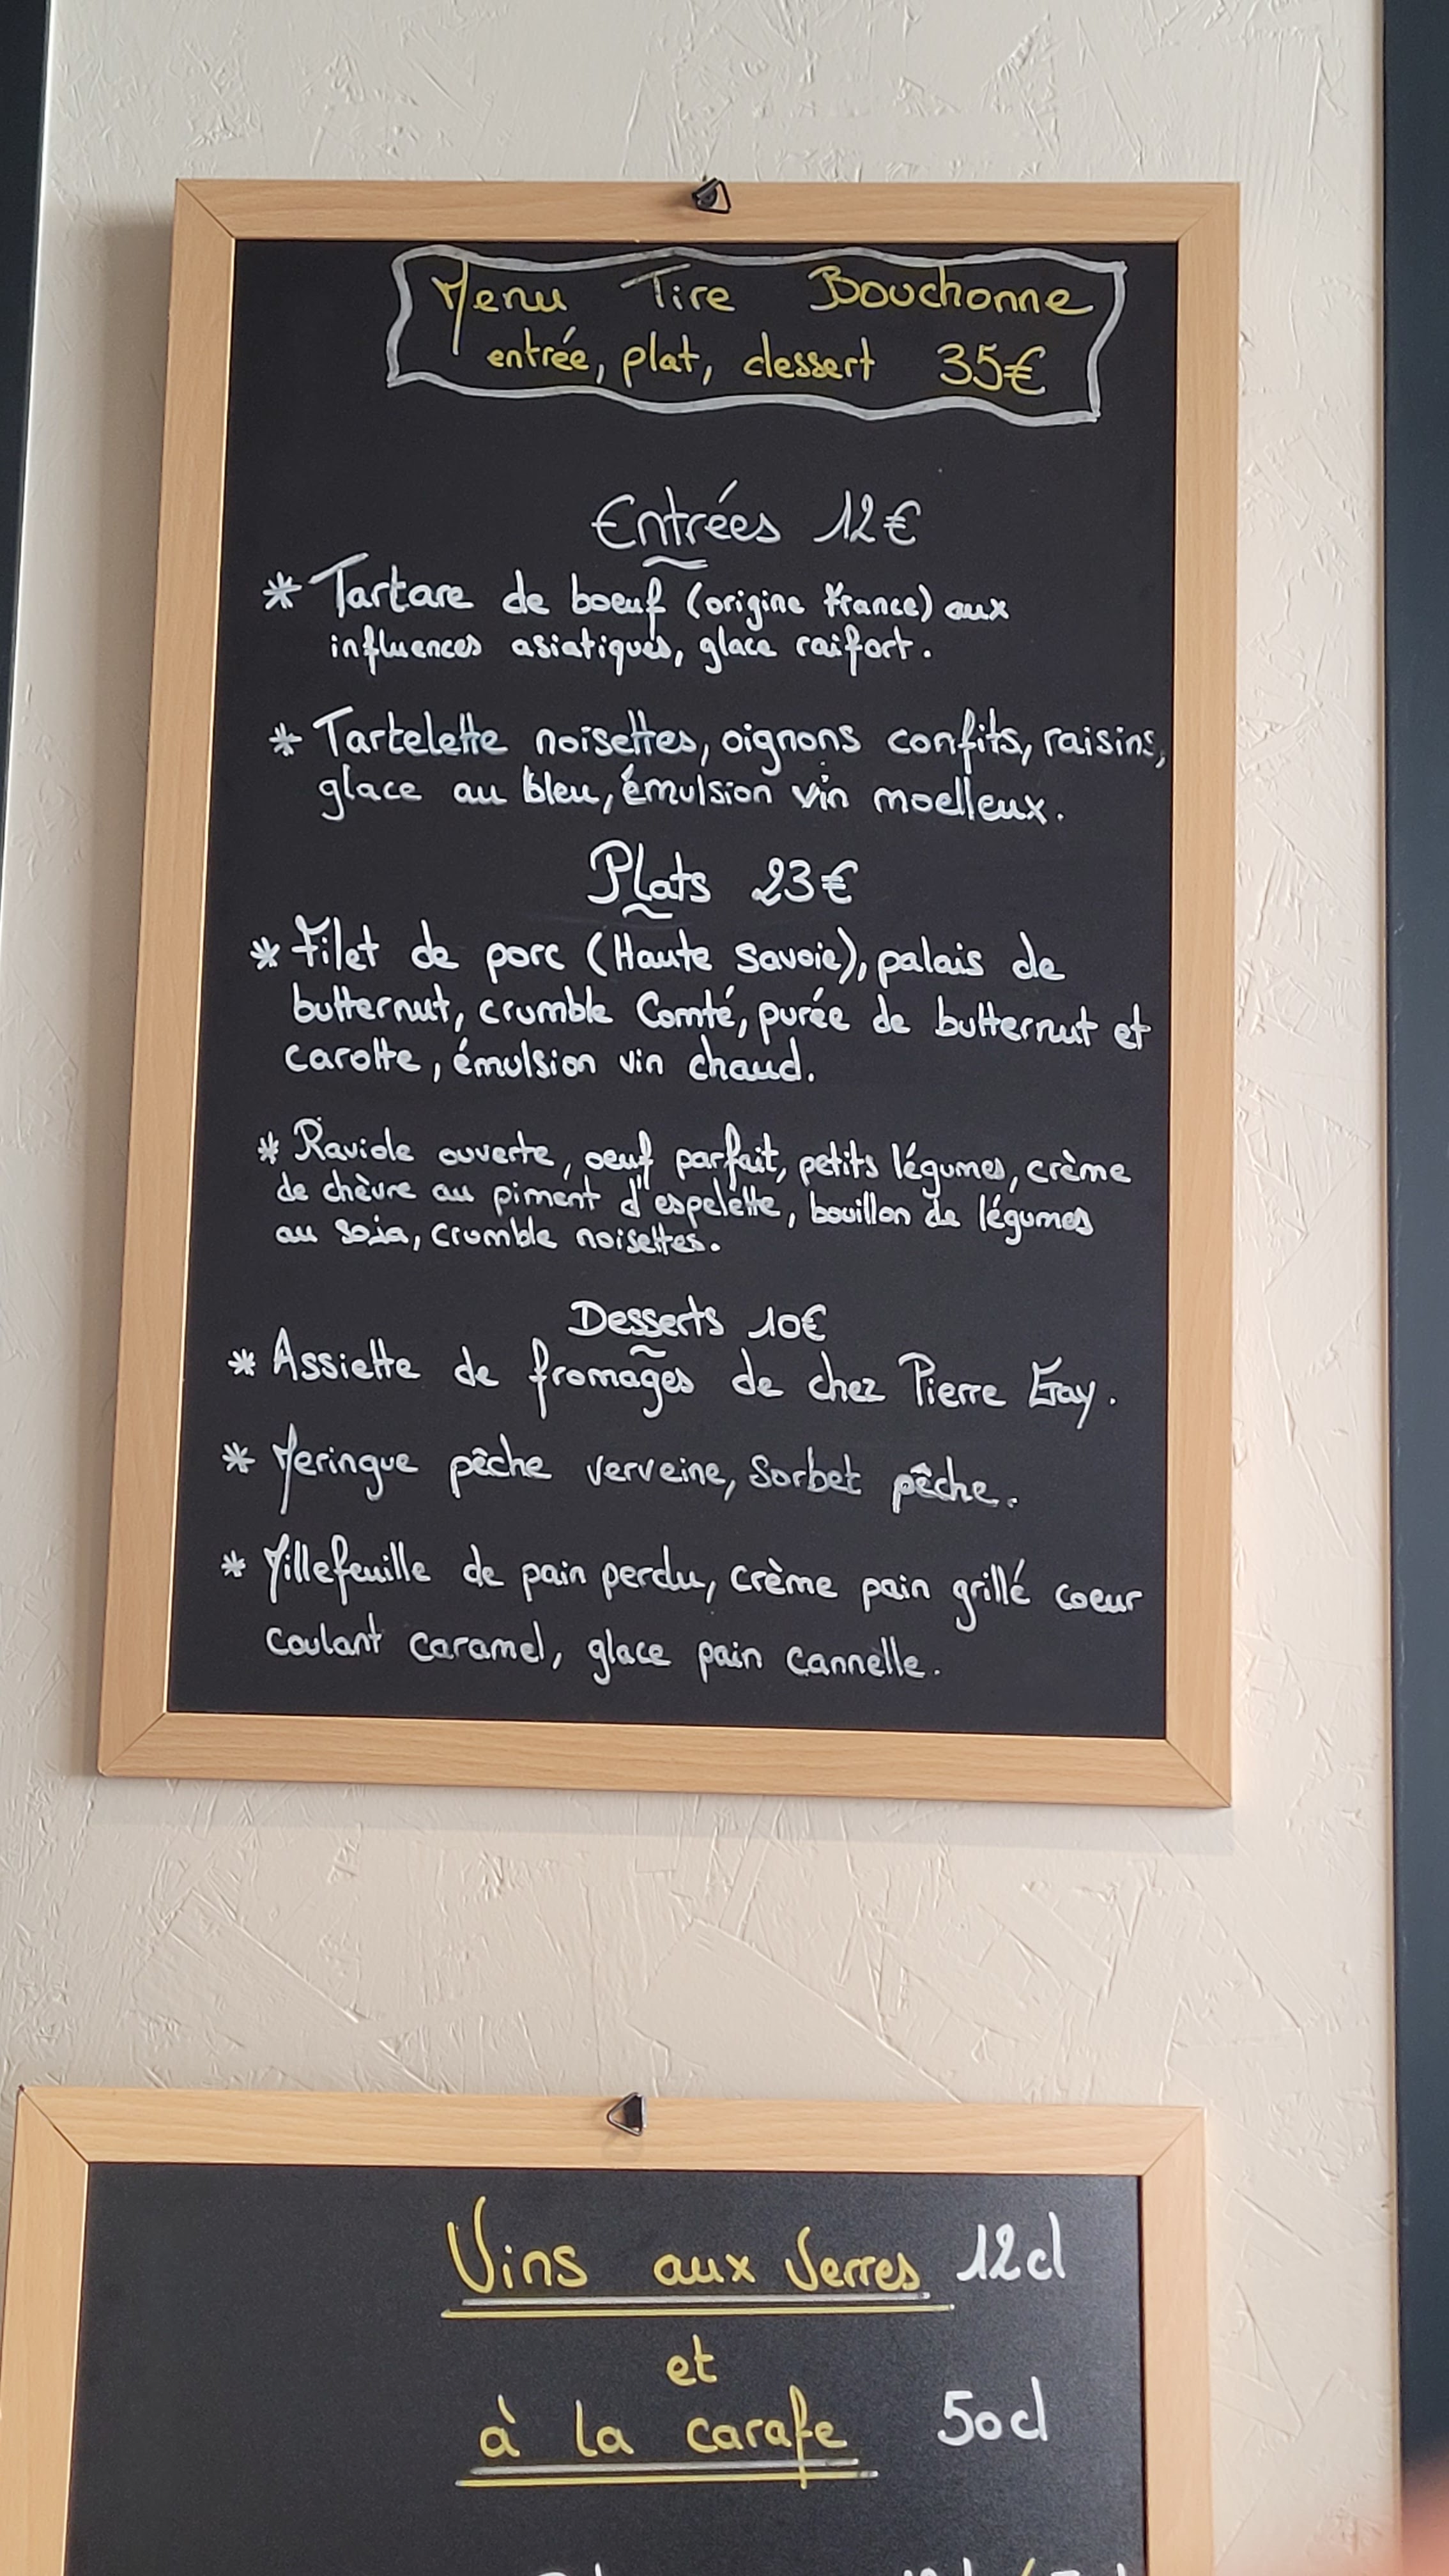 Menu Tire Bouchonne
entrée, plat, dessert 35€
Entrées 12€
* Tartare de boeuf (origine France) aux
influences asiatiques, glace raifort.
* Tartelette noisettes, oignons confits, raisins,
glace au bleu, émulsion vin moelleux.
Plats 23€
* Filet de porc (Haute Savoie), palais de
butternut, crumble Comté, purée de butternut et
carotte, émulsion vin chaud.
* Raviole ouverte, oeuf parfait, petits légumes, crème
de chèvre au piment d'espelette, bouillon de légumes
au soja, crumble noisettes.
Desserts 10€
* Assiette de fromages de chez Pierre Gay.
* Meringue pêche verveine, Sorbet pêche.
* Millefeuille de pain perdu, crème pain grillé coeur
coulant caramel, glace pain cannelle.
Vins aux Verres 12cl
et
à la carafe 50cl